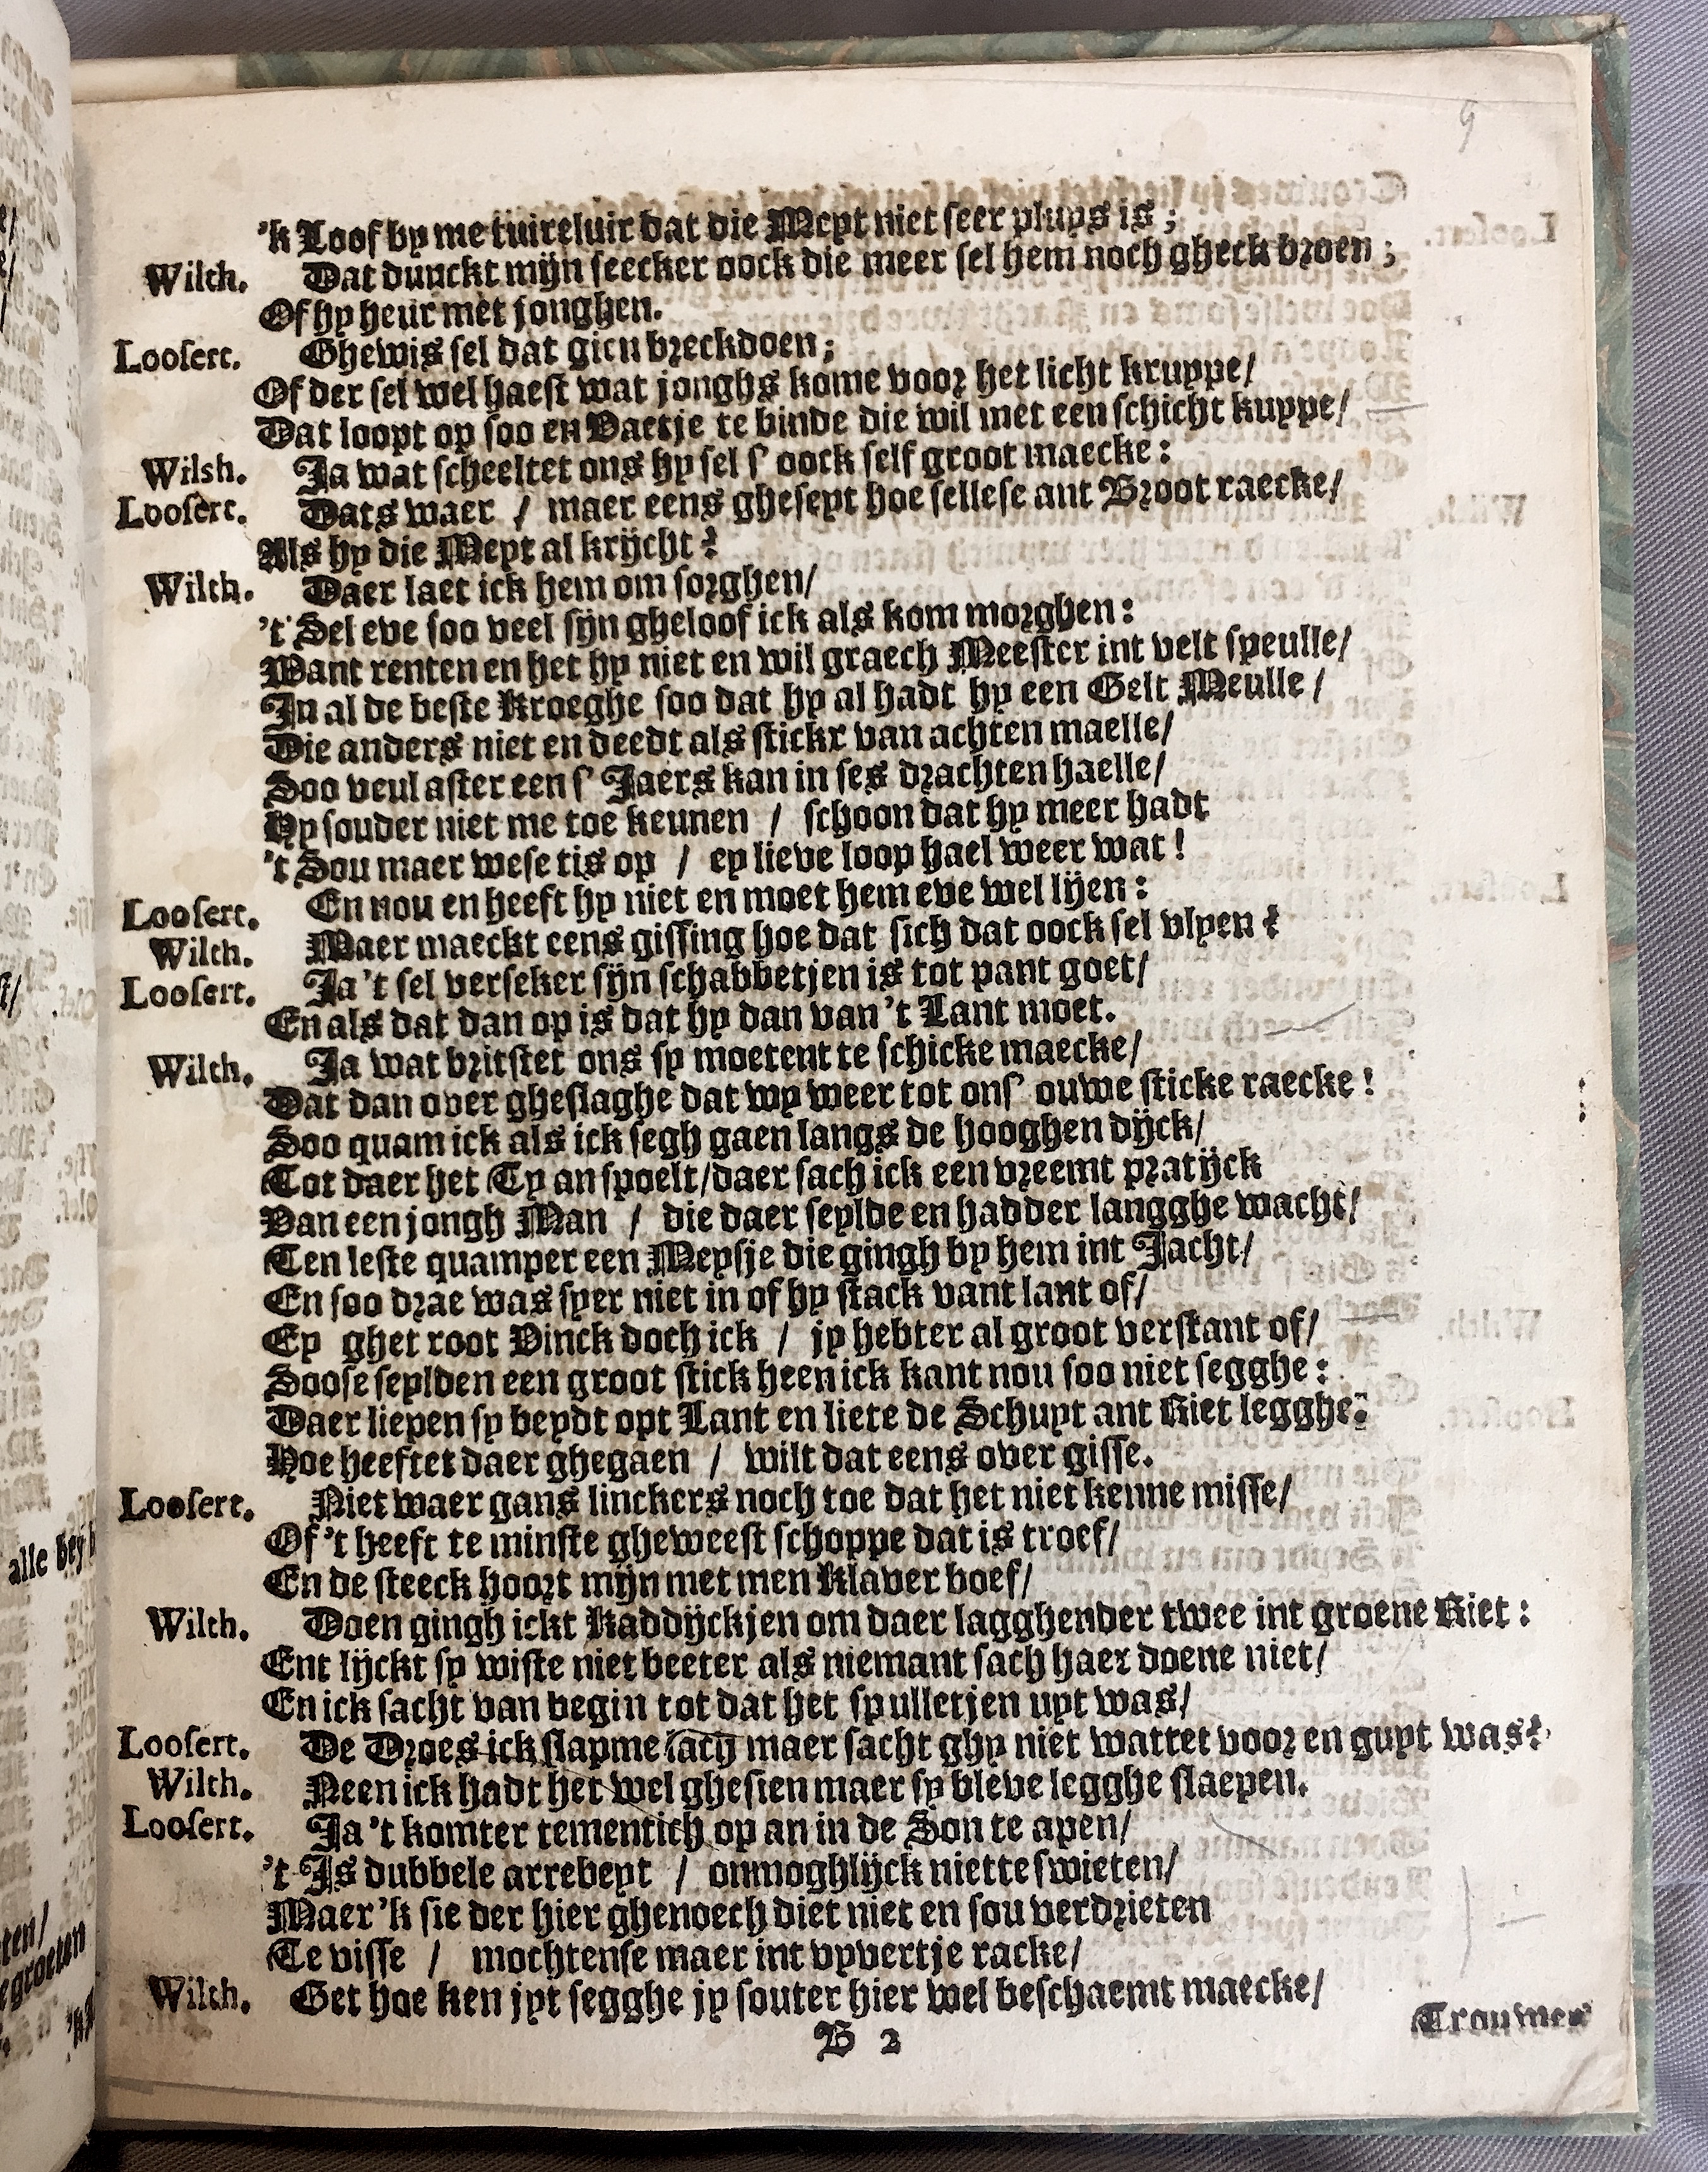 9
'k Loof by me tuireluir dat die Meyt niet seer pluys is ;
Wilth. Dat dunckt mijn seecker oock die meer sel hem noch gheck broen ;
Of hy heur met jonghen.
Loosert. Ghewis sel dat gien breckdoen ;
Of der sel wel haest wat jonghs kome voor het licht kruppe/
Dat loopt op soo en Vaetje te binde die wil met een schicht kuppe/
Wilsh. Ja wat scheeltet ons hy sel s' oock self groot maecke :
Loosert. Dats waer / maer eens gheseyt hoe sellese ant Broot raecke/
Als hy die Meyt al krijcht ?
Wilth. Daer laet ick hem om sorghen/
't Sel eve soo veel sijn gheloof ick als kom morghen :
Want renten en het hy niet en wil graech Meester int velt speulle/
In al de beste Kroeghe soo dat hy al hadt hy een Gelt Meulle /
Die anders niet en deedt als stickr van achten maelle/
Soo veul aster een s' Jaers kan in ses drachten haelle/
Hy souder niet me toe keunen / schoon dat hy meer hadt
't Sou maer wese tis op / ey lieve loop hael weer wat !
Loosert. En nou en heeft hy niet en moet hem eve wel lijen :
Wilth. Maer maeckt eens gissing hoe dat sich dat oock sel vlyen ?
Loosert. Ja 't sel verseker sijn schabbetjen is tot pant goet/
En als dat dan op is dat hy dan van 't Lant moet.
Wilth. Ja wat britstet ons sy moetent te schicke maecke/
Dat dan over gheslaghe dat wy weer tot ons' ouwe sticke raecke !
Soo quam ick als ick segh gaen langs de hooghen dijck/
Tot daer het Ty an spoelt/daer sach ick een vreemt pratijck
Van een jongh Man / die daer seylde en hadder langghe wacht/
Ten leste quamper een Meysje die gingh by hem int Jacht/
En soo drae was syer niet in of hy stack vant lant of/
Ey ghet root Vinck doch ick / jy hebter al groot verstant of/
Soose seylden een groot stick heen ick kant nou soo niet segghe :
Daer liepen sy beydt opt Lant en liete de Schuyt ant Riet legghe:
Hoe heeftet daer ghegaen / wilt dat eens over gisse.
Loosert. Niet waer gans linckers noch toe dat het niet kenne misse/
Of 't heeft te minste gheweest schoppe dat is troef/
En de steeck hoort mijn met men Klaver boef/
Wilth. Doen gingh ickt Kaddijckjen om daer lagghender twee int groene Riet :
Ent lijckt sy wiste niet beeter als niemant sach haer doene niet/
En ick sacht van begin tot dat het spulletjen uyt was/
Loosert. De Droes ick slapme sach maer sacht ghy niet wattet voor en guyt was?
Wilth. Neen ick hadt het wel ghesien maer sy bleve legghe slaepen.
Loosert. Ja 't komter tementich op an in de Son te apen/
't Is dubbele arrebeyt / onmoghlijck niet te swieten/
Maer 'k sie der hier ghenoech diet niet en sou verdrieten
Te visse / mochtense maer int vyvertje racke/
Wilth. Get hoe ken jyt segghe jy souter hier wel beschaemt maecke/
B 2
Trouwen